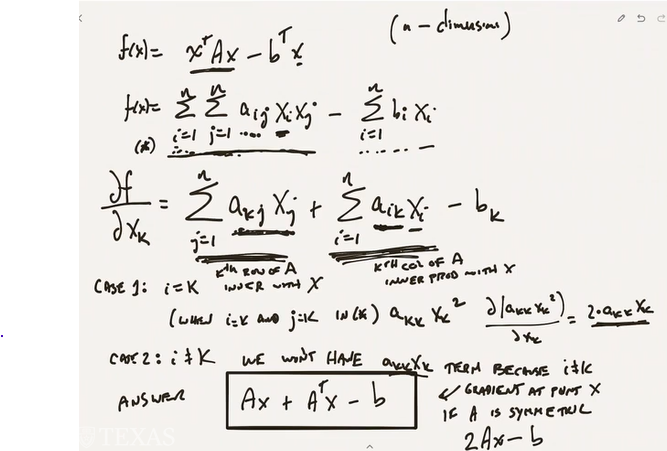 (n - dimensions)
f(x) = xᵀAx - bᵀx
f(x) = n∑i=1 n∑j=1 aij xi xj - n∑i=1 bi xi
(*)
∂f/∂xK = n∑j=1 aKj xj + n∑i=1 aiK xi - bK
Kth ROW OF A INNER WITH X
KTH COL OF A INNER PROD WITH X
CASE 1: i=K
(WHEN i=K AND j=K IN (*)) aKK xK² ∂(aKK xK²)/∂xK = 2·aKK xK
CASE 2: i≠K WE WONT HAVE aKKXK TERM BECAUSE i≠K
ANSWER Ax + Aᵀx - b
GRADIENT AT POINT X
IF A IS SYMMETRIC
2Ax - b
TEXAS